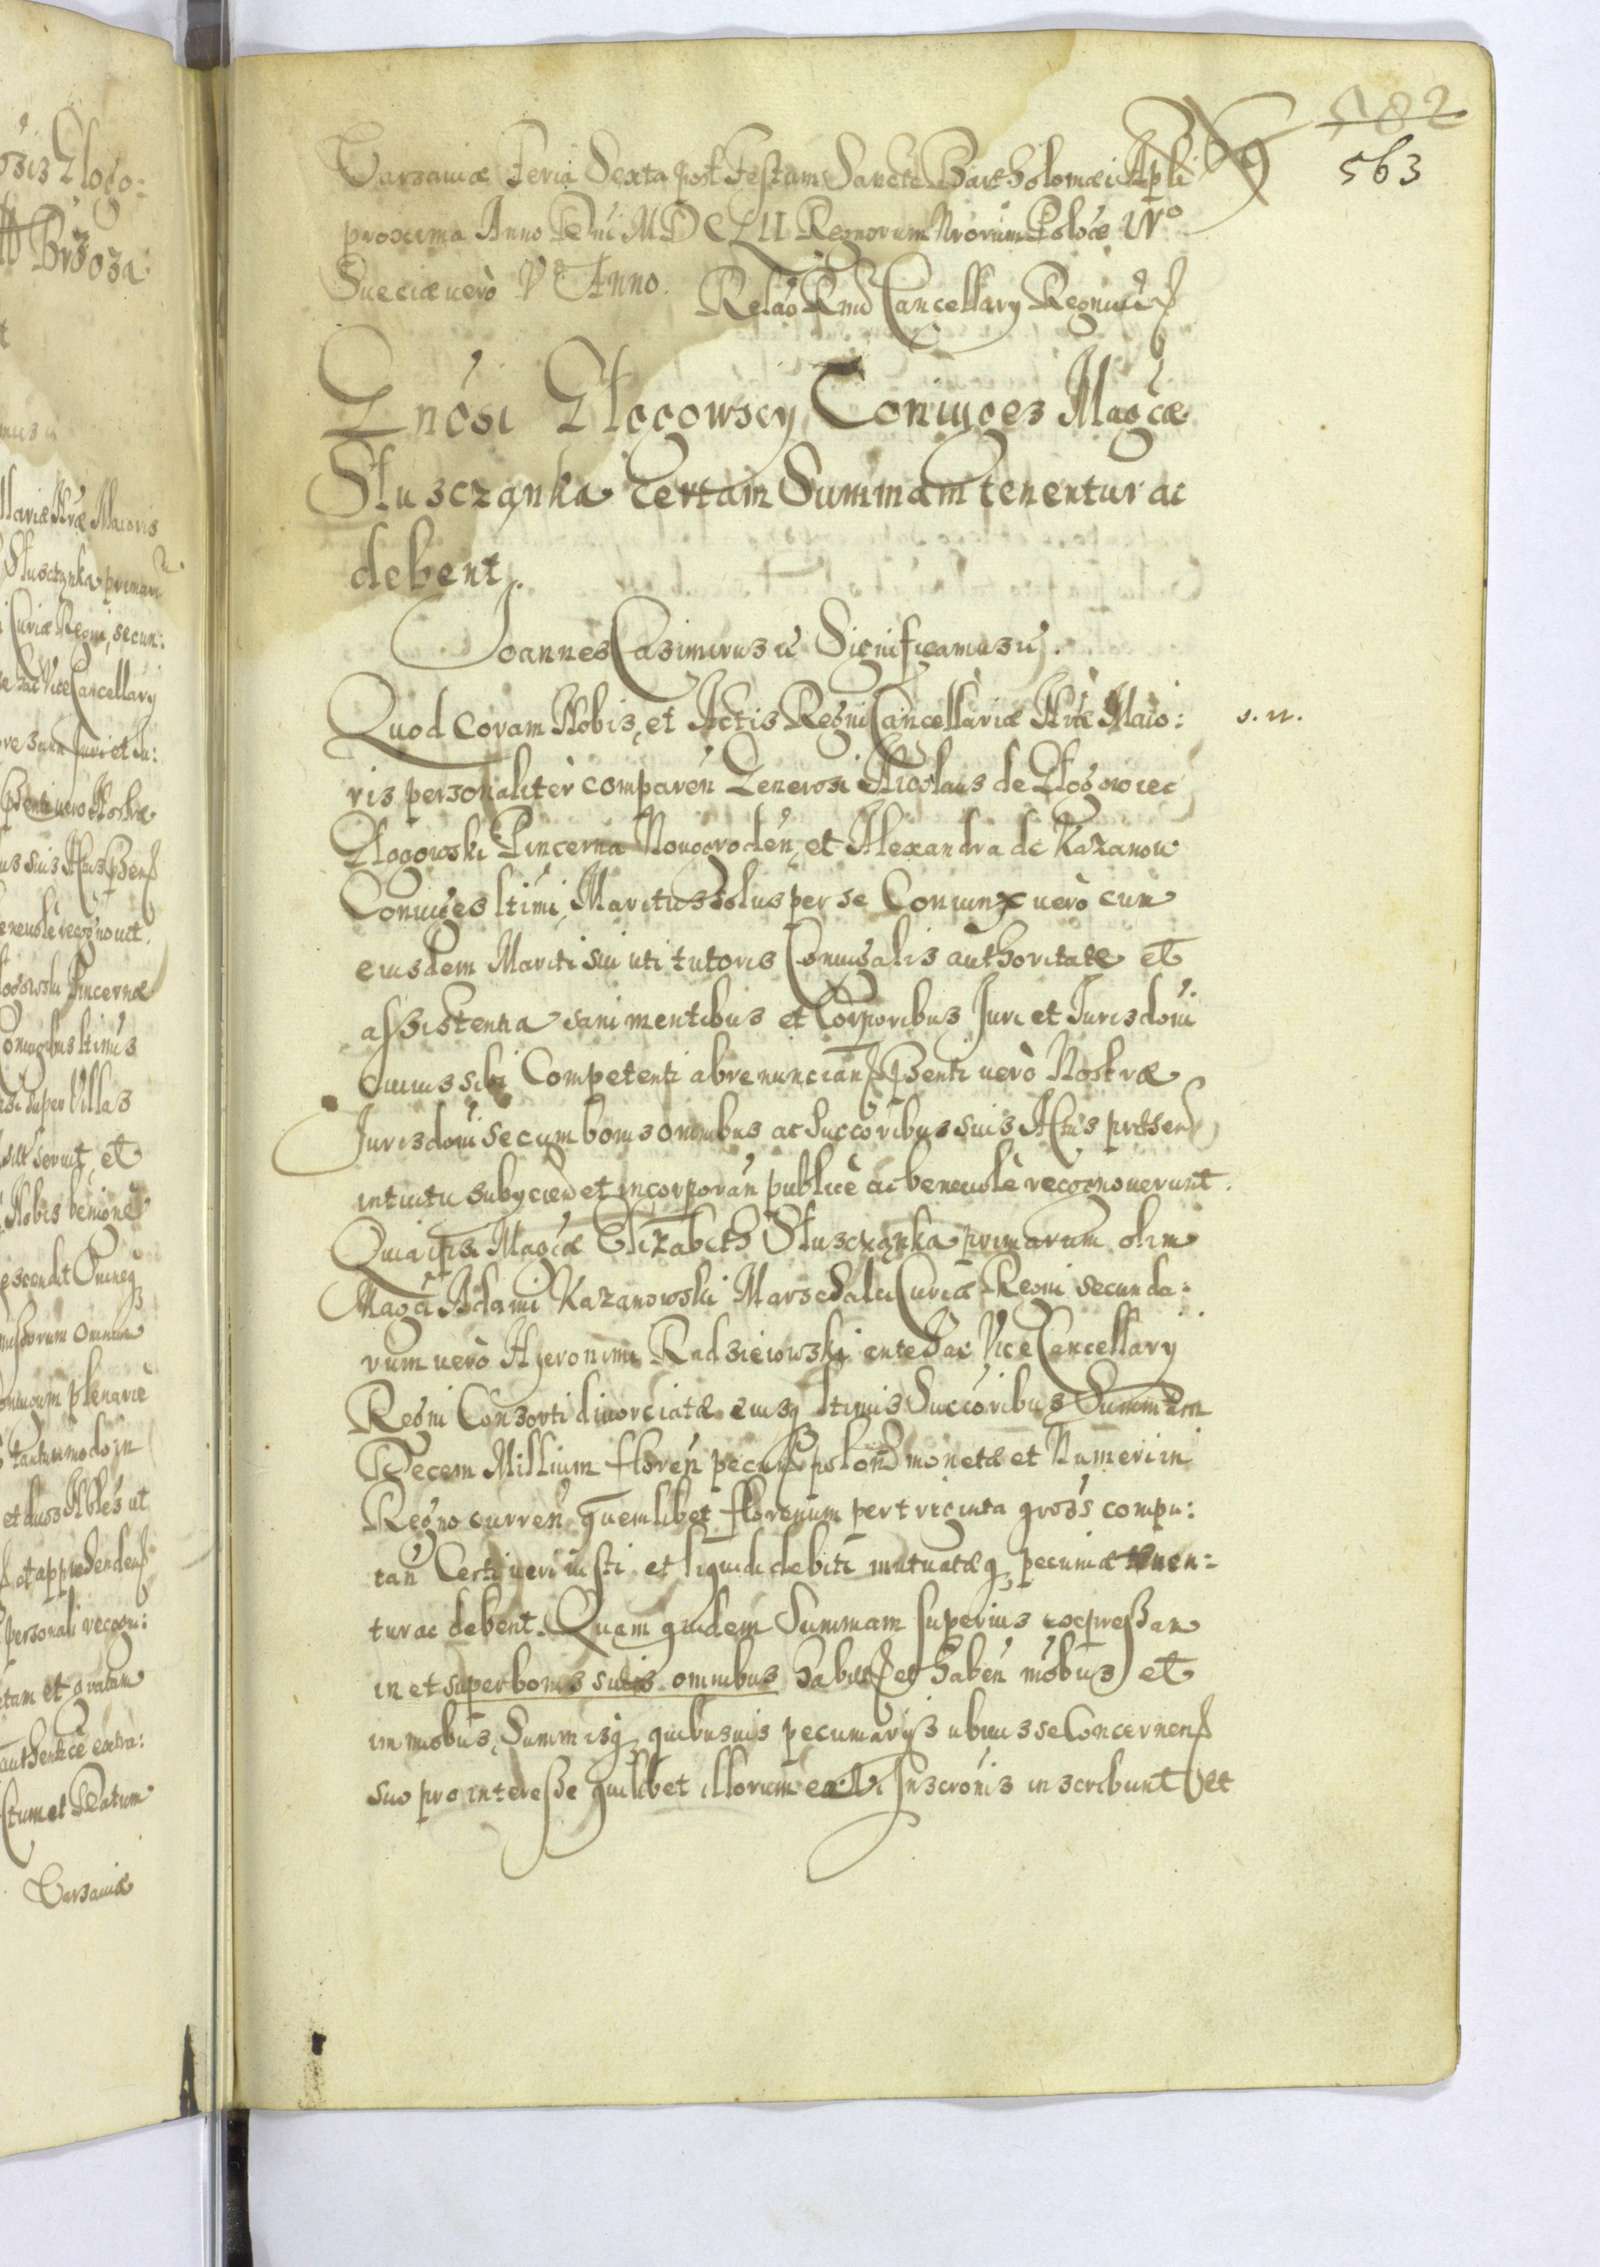 582
563
Varsaviæ Feria Sexta post Festum Sancti Bartholomæi Apli
proxima Anno Dni MDCLII Regnorum Nrorum Poloæ IVto
Sueciæ verò Vo Anno. Relaõ Rmd Cancellarij Regni
Gnosi Głogowscy Coniuges Magcæ
Słusczanka certam Summam tenentur ac
debent.
Joannes Casimirus etc Significamus etc.
Quod coram Nobis, et Actis Regni Cancellariæ Nræ Maio:
s. n.
ris personaliter comparen Generosi Nicolaus de Głogowiec
Głogowski Pincerna Nouogroden, et Alexandra de Kazanow
Coniuges ltimi, Maritus solus per se Coniunx uerò cum
eiusdem Mariti sui uti tutoris Coniugalis authoritate et
assistentia sani mentibus et Corporibus Juri et Jurisdoni
Omnis sibi Competenti abrenuncian pñsenti uerò Nostræ
Jurisdoni se cum bonis omnibus ac Succoribus suis Actus præsen
intuitu subijcien et incorporan publicè ac beneuolè recognouerunt.
Quia ipsi Magcæ Elizabeth Słusczanka primarum olim
Magci Adami Kazanowski Marschalci Curiæ Regni secunda:
rum uerò Hieronimi Radzieiowski antehac Vice Cancellarij
Regni Consorti diuorciatæ eiusq ltimis Succoribus Summam
Decem Millium floren pecun polon monetæ et Numeri in
Regno curren quemlibet florenum per triginta gross compu:
tan Certi ueri iusti et liquidi debiti mutuatæq pecuniæ tenen:
tur ac debent. Quam quidem Summam superius expressam
in et super bonis suis omnibus habit et haben mobus et
immobus, Summisq quibusuis pecuniarijs ubiuis se Concernen
suo pro interesse quilibet illorum ex Vi Inscronis inscribunt et